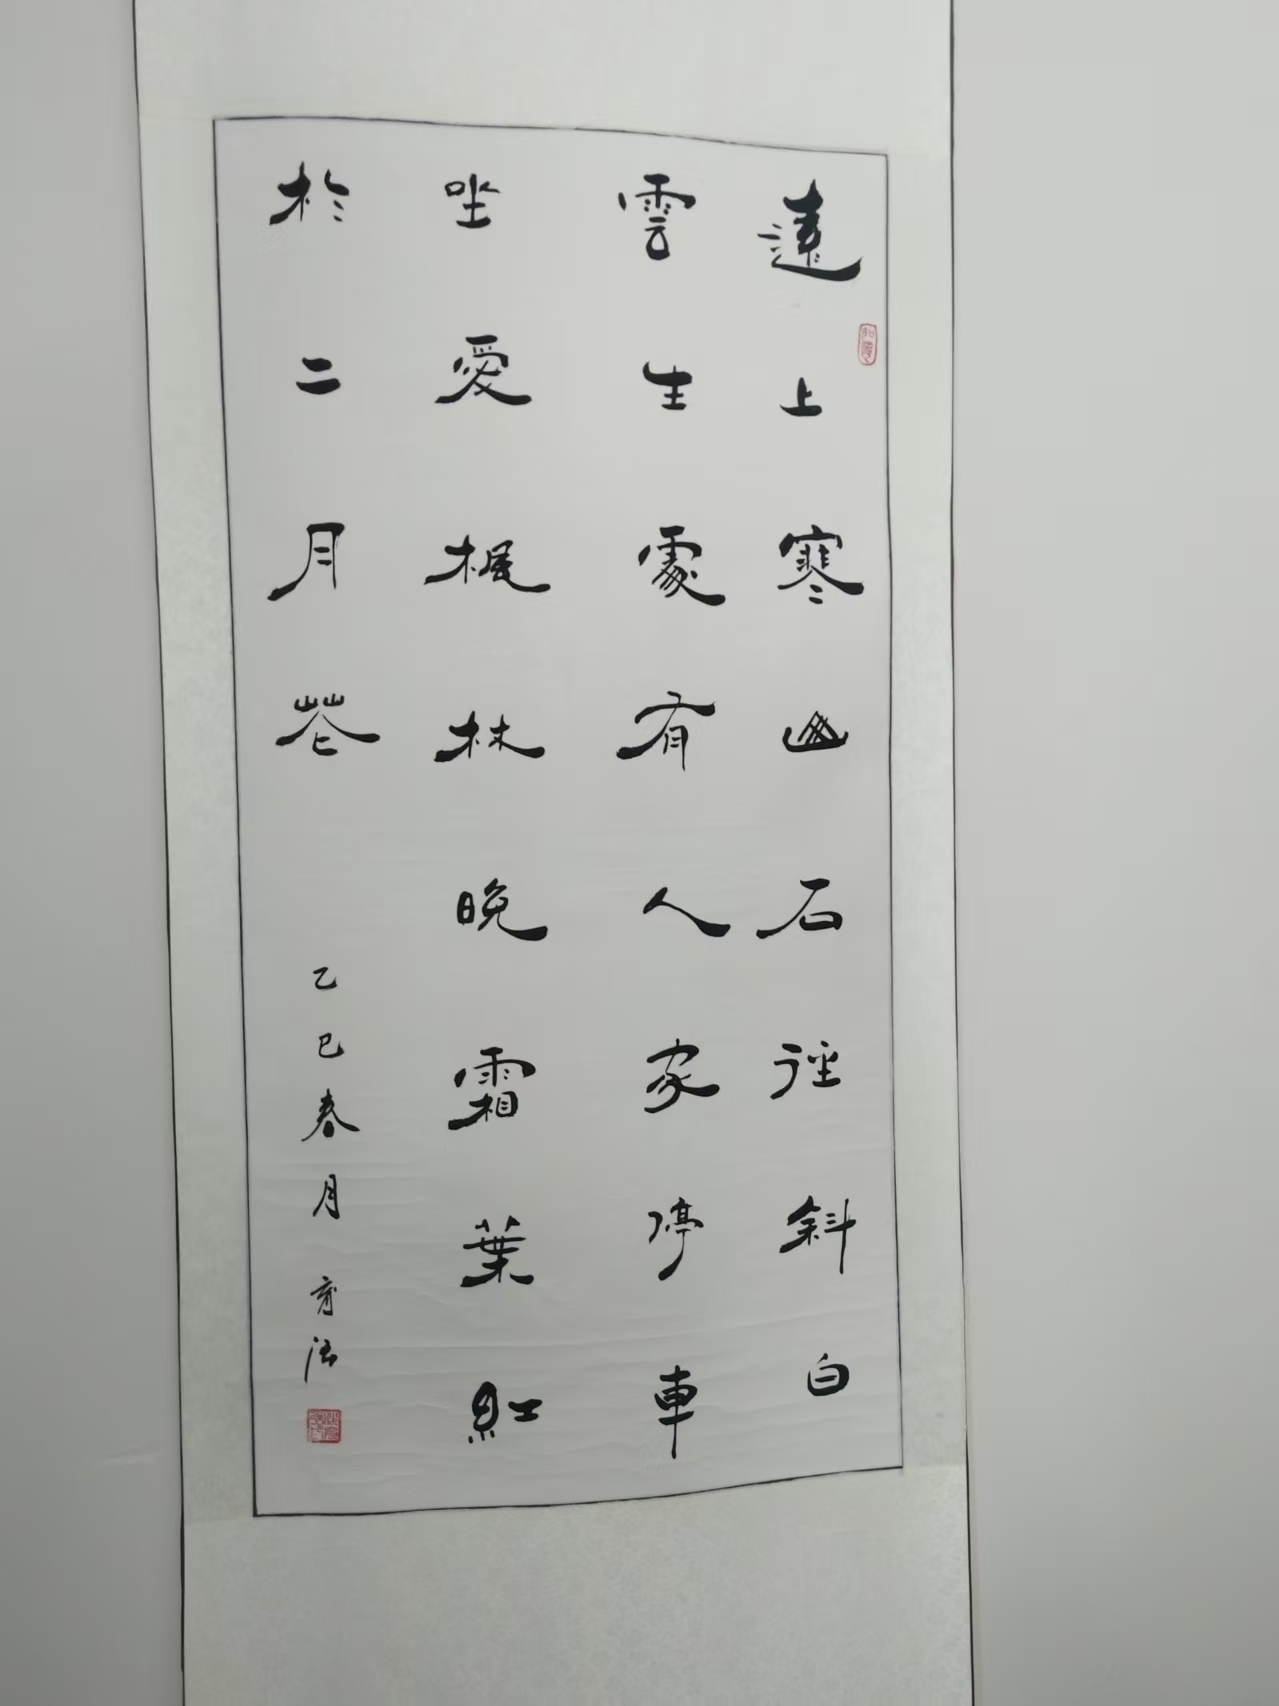 遠上寒山石徑斜白
雲生處有人家停車
坐愛楓林晚霜葉紅
於二月花
乙巳春月